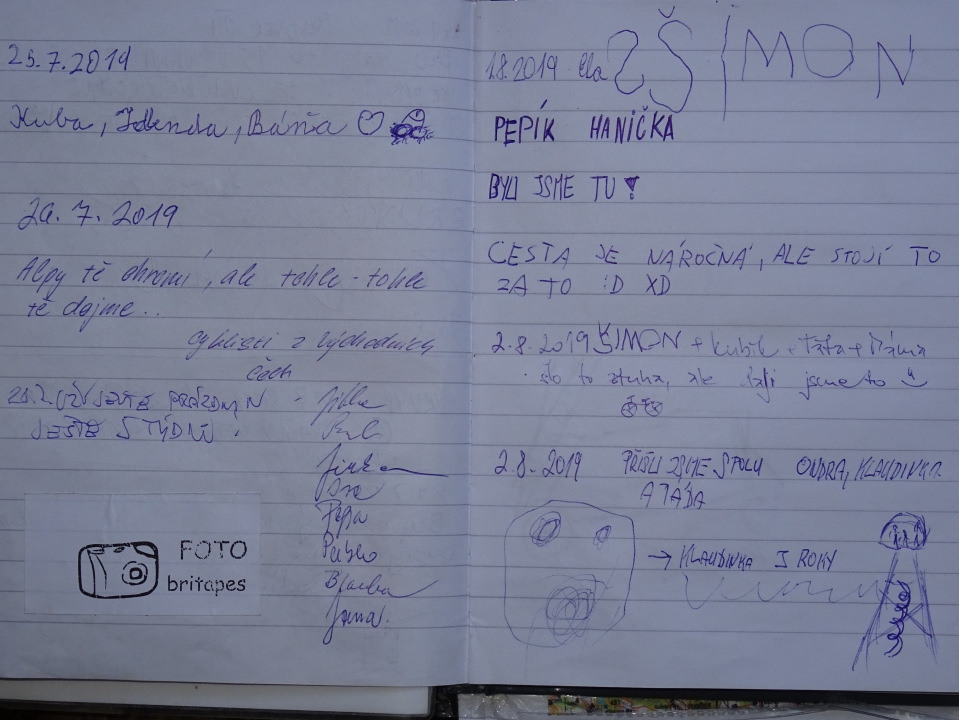 25.7.2019
Kuba, Zdenda, Bára
29. 7. 2019
Alpy tě ohromí, ale tohle - tohle
tě dojme..
cyklisti z východních
Čech
JEŠTĚ PRÁZDNIN
JEŠTĚ 5 TÝDNŮ.
Jirka
Pepa
Pablo
Blanka
Jana
FOTO
britapes
1.8.2019 ŠIMON
PEPÍK HANIČKA
BYLI JSME TU!
CESTA JE NÁROČNÁ, ALE STOJÍ TO
ZA TO :D XD
2.8.2019 ŠIMON + Kubík + Táta + Máma
šlo to ztuha, ale dali jsme to
2.8.2019 PŘIŠLI JSME SPOLU ONDRA, KLAUDINKA
A TÁĎA
→ KLAUDINKA 3 ROKY